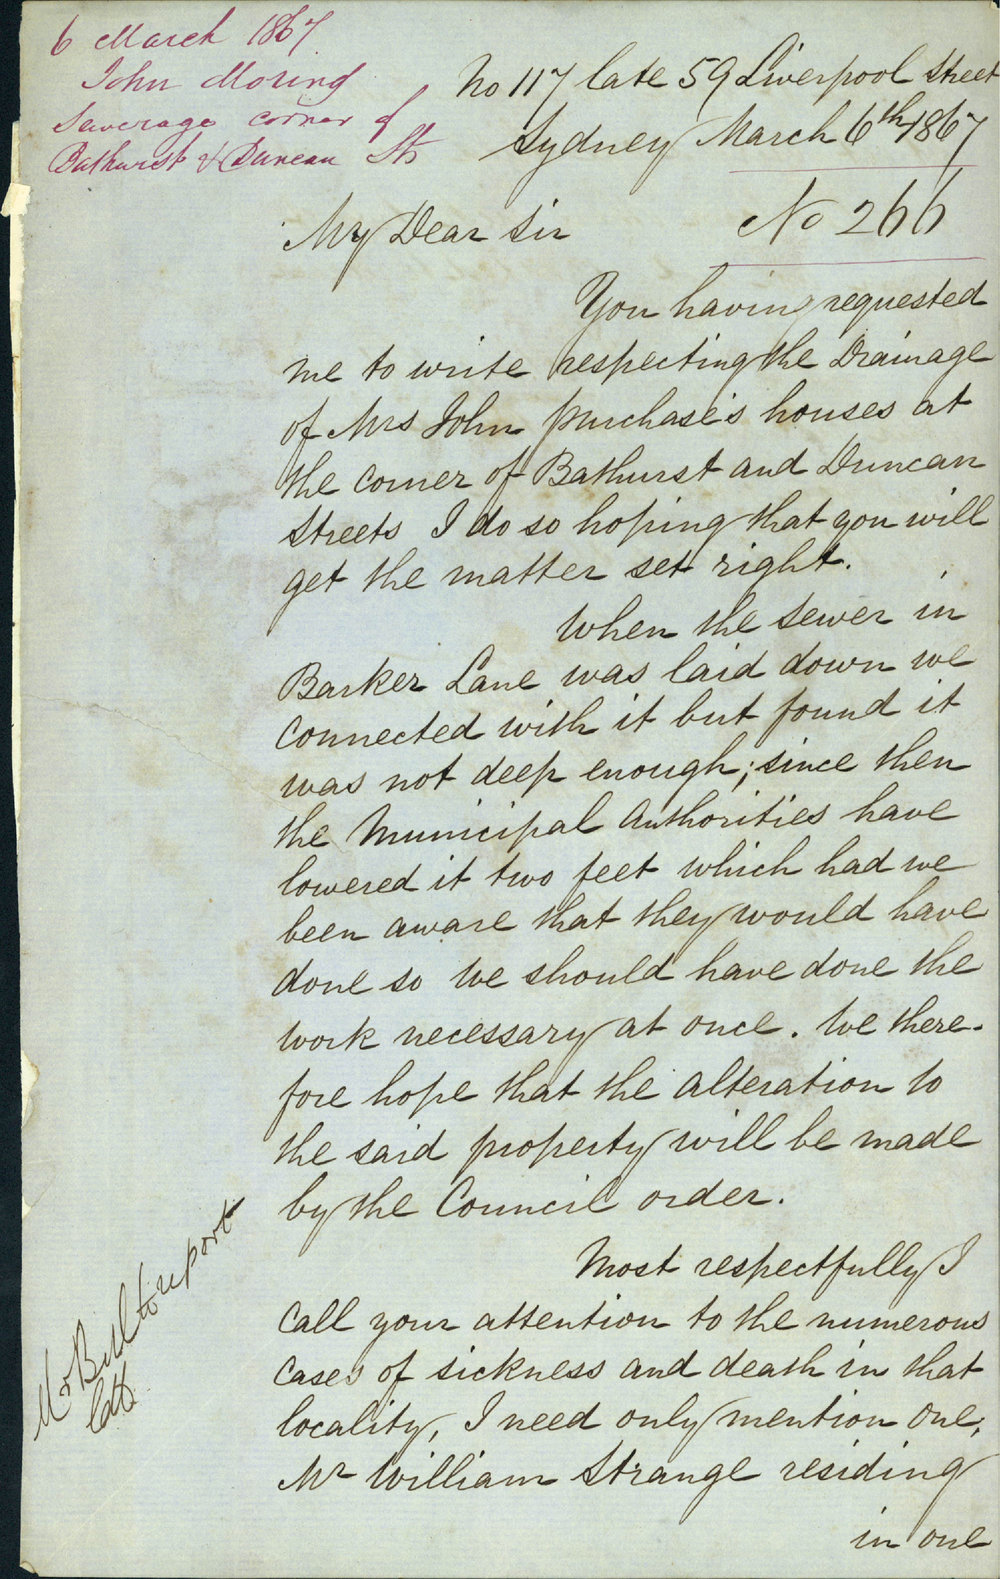 6 March 1867
John Moring
Sewerage corner of
Bathurst & Duncan Sts
No 117 late 59 Liverpool Street
Sydney March 6th 1867
No 266
My Dear Sir
You having requested
me to write respecting the Drainage
of Mrs John Purchase's houses at
the corner of Bathurst and Duncan
Streets I do so hoping that you will
get the matter set right.
When the sewer in
Barker Lane was laid down we
connected with it but found it
was not deep enough; since then
the Municipal Authorities have
lowered it two feet which had we
been aware that they would have
done so we should have done the
work necessary at once. We there-
fore hope that the alteration to
the said property will be made
by the Council order.
Most respectfully I
call your attention to the numerous
cases of sickness and death in that
locality, I need only mention one,
Mr William Strange residing
in one
Mr Bell to report